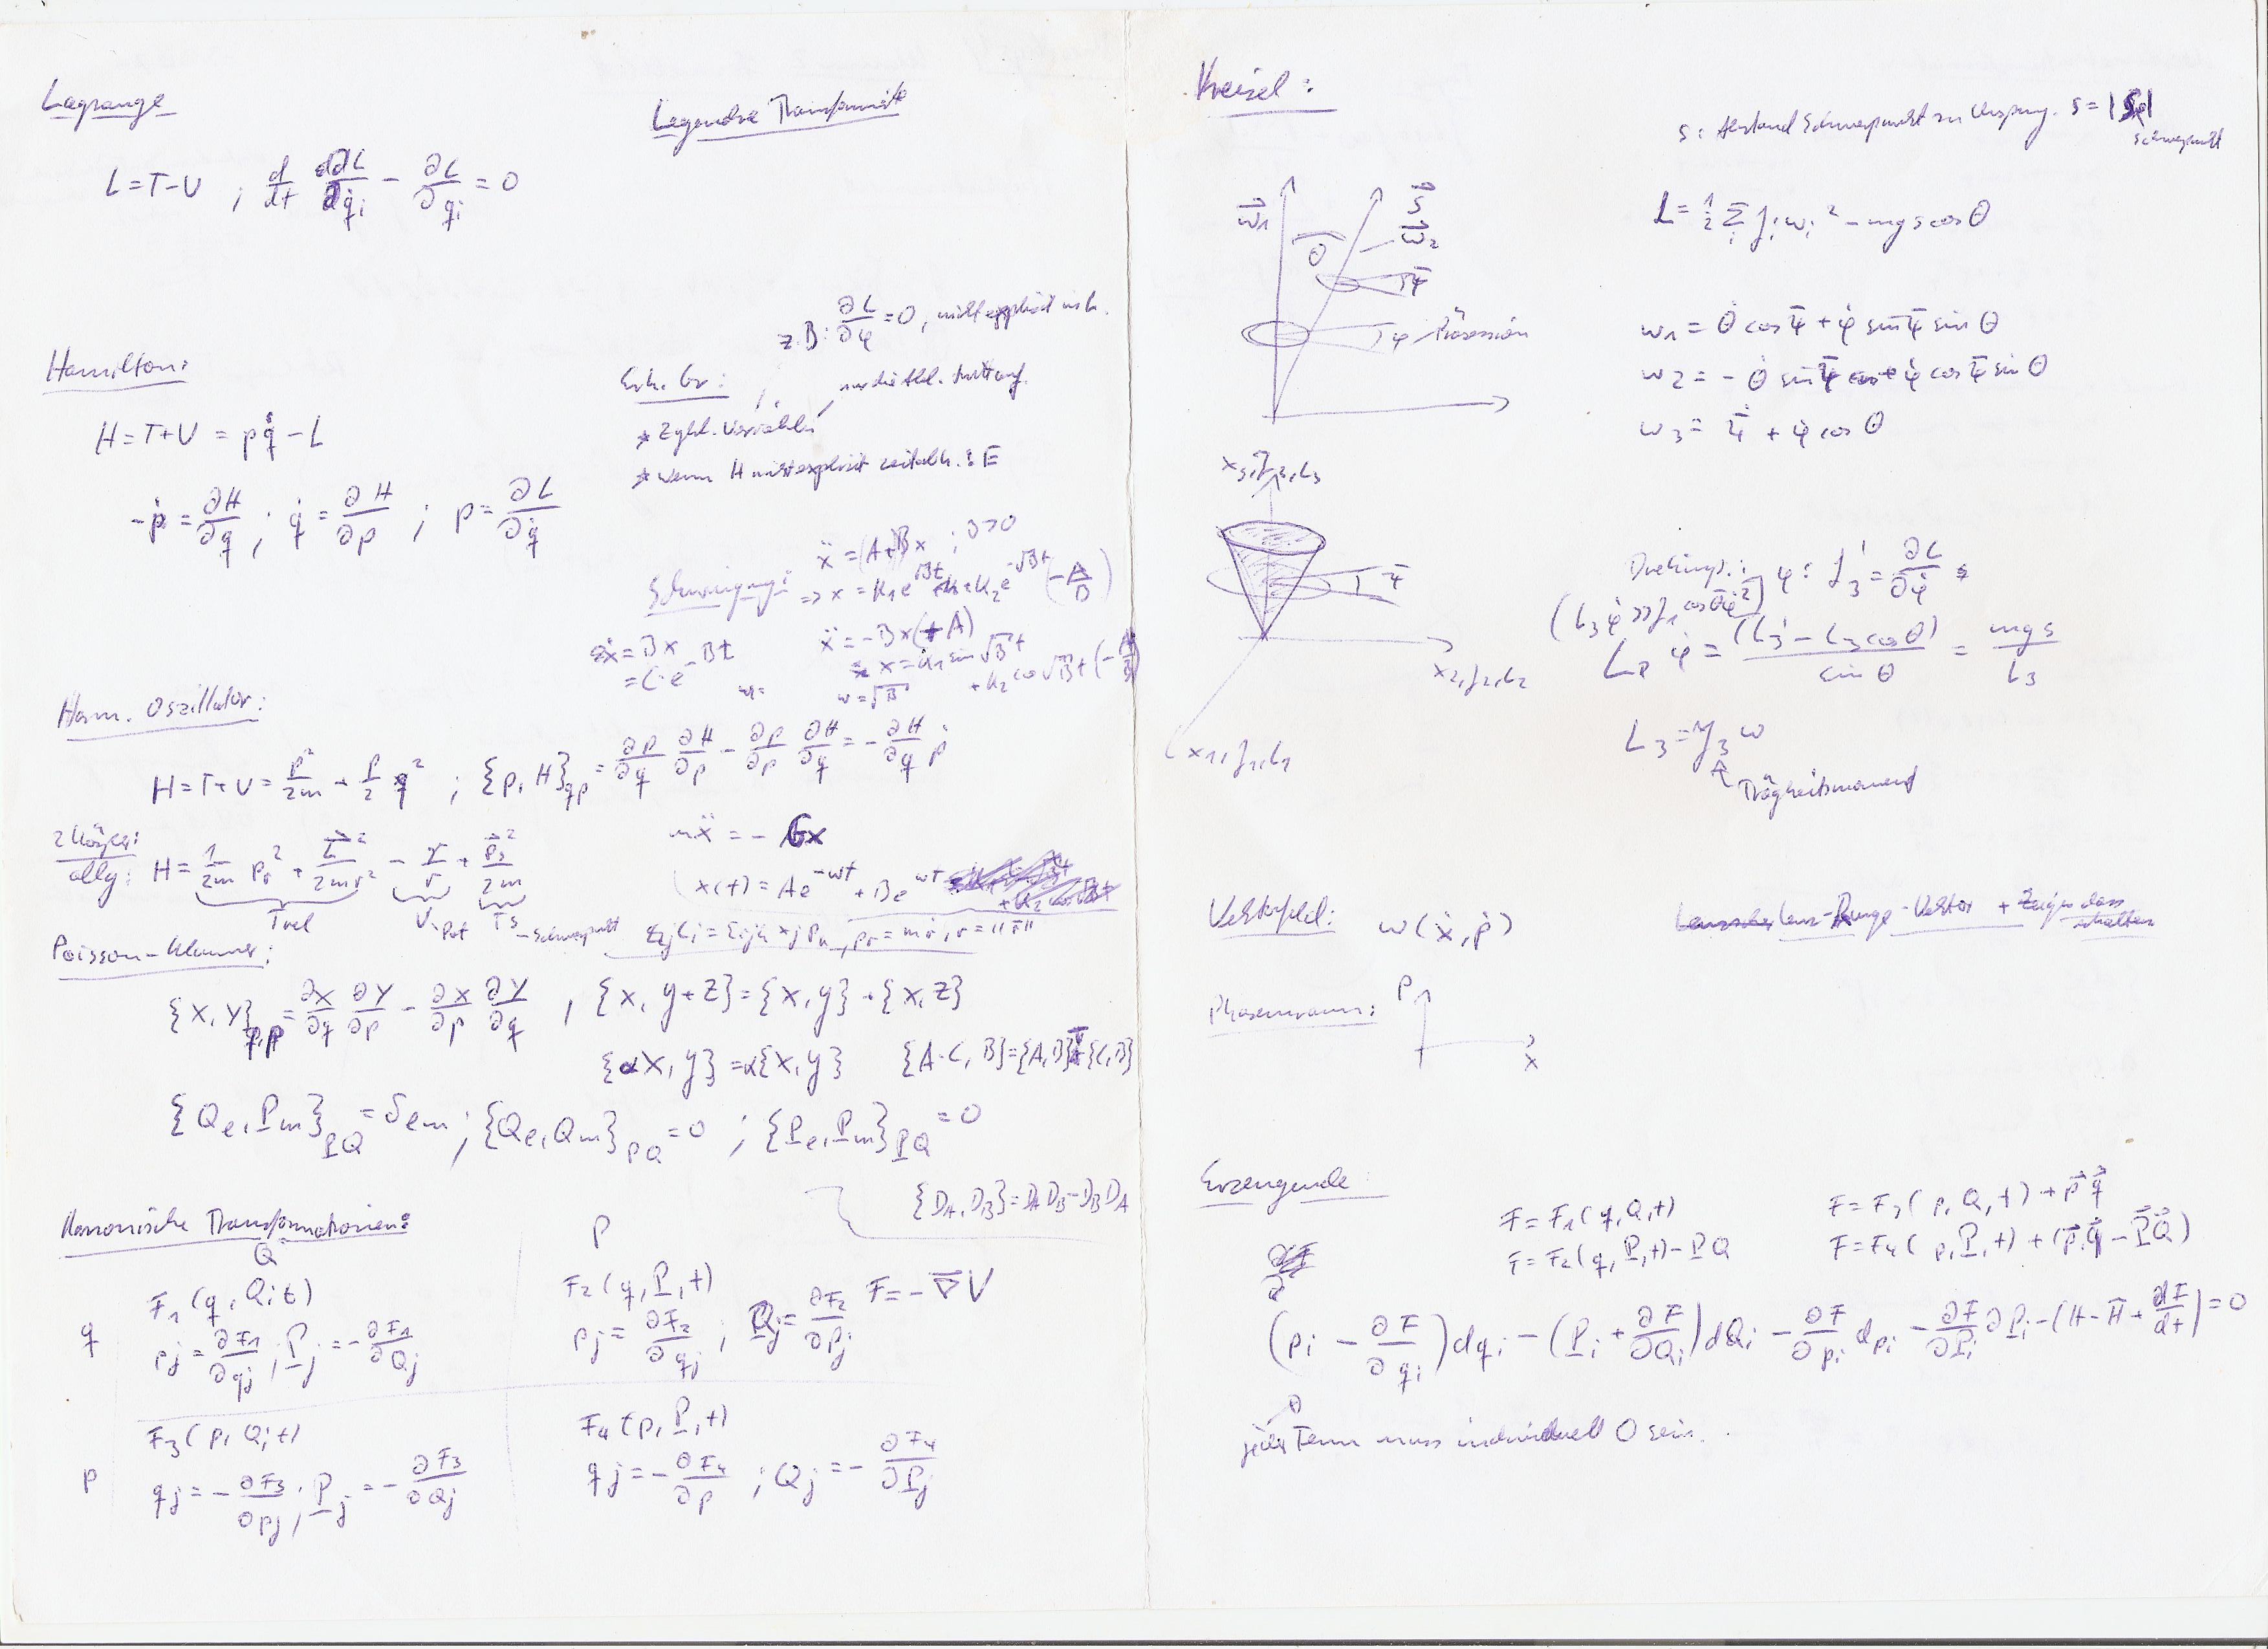 Lagrange
L = T - U ; d/dt ∂L/∂q̇i - ∂L/∂qi = 0
Legendre Transformierte
Hamilton:
H = T + U = p q̇ - L
-ṗ = ∂H/∂q ; q̇ = ∂H/∂p ; p = ∂L/∂q̇
z.B: ∂L/∂φ = 0, nicht explizit in L.
Erh. Gr:
nur die Abl. tritt auf.
* Zykl. Variablen
* wenn H nicht explizit zeitabh.: E
Schwingung: ẍ = (A+)Bx ; B>0
=> x = k1 e^√Bt + k2 e^-√Bt (-A/B)
ẋ = Bx
= C·e^-Bt
ẍ = -Bx(+A)
x = k1 sin √B t
+ k2 cos √B t (-A/B)
w = √B
Harm. Oszillator:
H = T + U = p²/2m + p/2 q² ; {p, H}qp = ∂p/∂q ∂H/∂p - ∂p/∂p ∂H/∂q = - ∂H/∂q ṗ
mẍ = - Gx
x(t) = A e^-wt + B e^wt
2 Körper:
allg: H = 1/2m pr² + L⃗²/2mr² - γ/r + p⃗s²/2m
Trel
U-Pot
Ts-Schwerpunkt
Li = εijk xj pk, pr = mṙ, r = "r̄"
Poisson-Klammer:
{X, Y}q,p = ∂X/∂q ∂Y/∂p - ∂X/∂p ∂Y/∂q , {x, y+z} = {x, y} + {x, z}
{αX, y} = α{x, y} {A·C, B} = {A, B} + {C, B}
{Qe, Pm}PQ = δem ; {Qe, Qm}PQ = 0 ; {Pe, Pm}PQ = 0
{DA, DB} = DA DB - DB DA
Kanonische Transformationen:
Q
P
q
F1(q, Q, t)
pj = ∂F1/∂qj ; Pj = - ∂F1/∂Qj
F2(q, P, t)
pj = ∂F2/∂qj ; Qj = ∂F2/∂Pj
F = -∇V
p
F3(p, Q, t)
qj = - ∂F3/∂pj ; Pj = - ∂F3/∂Qj
F4(p, P, t)
qj = - ∂F4/∂p ; Qj = - ∂F4/∂Pj
Kreisel:
s: Abstand Schwerpunkt zu Ursprung. s = |s|
Schwerpunkt
w⃗1
θ
s⃗
w⃗2
Ψ
φ Präzession
L = 1/2 Σi Ji wi² - mgs cos θ
w1 = θ̇ cos Ψ + φ̇ sin Ψ sin θ
w2 = - θ̇ sin Ψ + φ̇ cos Ψ sin θ
w3 = Ψ̇ + φ̇ cos θ
x3, J3, L3
Ψ
x2, J2, L2
x1, J1, L1
Drehimp.: φ: L3' = ∂L/∂φ̇
(L3 φ̇ >> J1 cos θ φ̇²)
φ̇ = (L3' - L3 cos θ)/sin θ = mgs/L3
L3 = J3 w
Trägheitsmoment
Vektorfeld: w(ẋ, ṗ)
Lenz-Runge-Vektor + zeigen dass erhalten
Phasenraum:
p
x
Erzeugende:
F = F1(q, Q, t)
F = F2(q, P, t) - PQ
F = F3(p, Q, t) + p⃗ q⃗
F = F4(p, P, t) + (p⃗ q⃗ - P⃗Q⃗)
(pi - ∂F/∂qi) dqi - (Pi + ∂F/∂Qi) dQi - ∂F/∂pi dpi - ∂F/∂Pi ∂Pi - (H - H̄ + dF/dt) = 0
jeder Term muss individuell 0 sein.